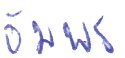 อัมพร